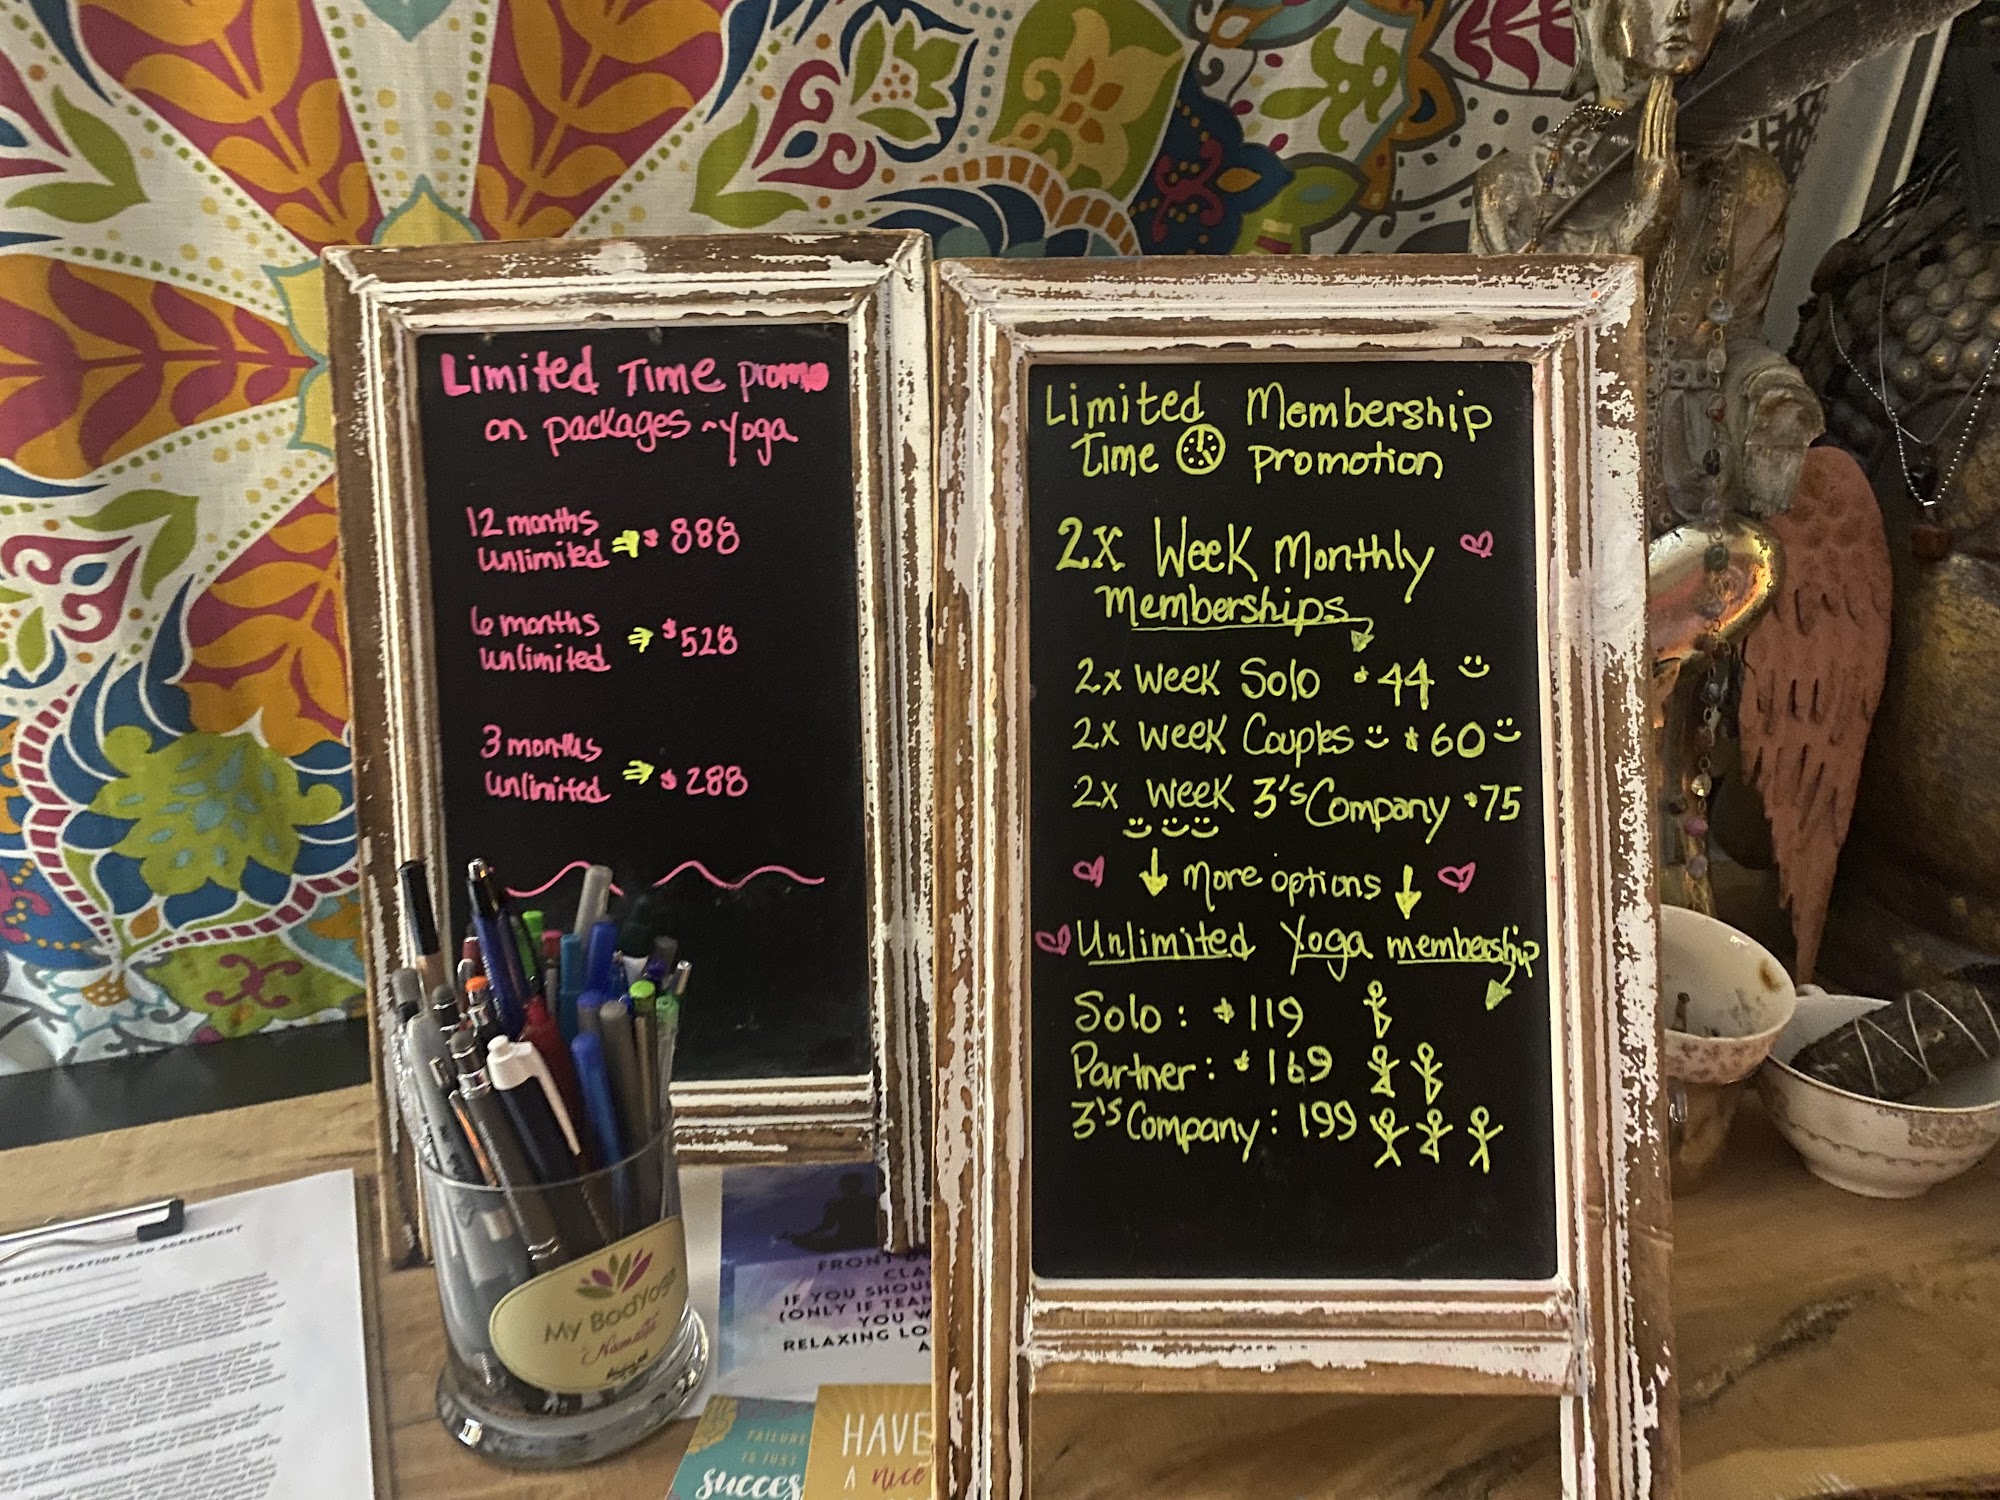 Limited Time promo
on packages ~ Yoga
12 months
Unlimited ⇒ $ 888
6 months
unlimited ⇒ $528
3 months
unlimited ⇒ $ 288
Limited Membership
Time promotion
2x Week Monthly
Memberships
2x week Solo $44
2x week Couples $60
2x week 3's Company $75
More options
Unlimited Yoga membership
Solo: $119
Partner: $169
3's Company: 199
REGISTRATION AND AGREEMENT
My BodYoga
Namasté
FRONT
CLA
IF YOU SHOU
(ONLY IF TEAM
YOU W
RELAXING LO
A
FAILURE
IS JUST
succes
HAVE
A nice